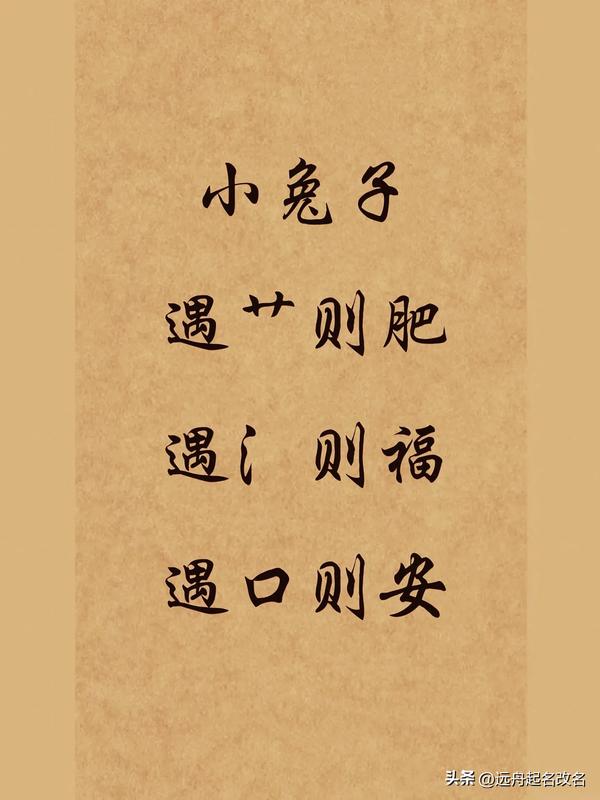 小兔子
遇艹则肥
遇氵则福
遇口则安
头条 @远舟起名改名